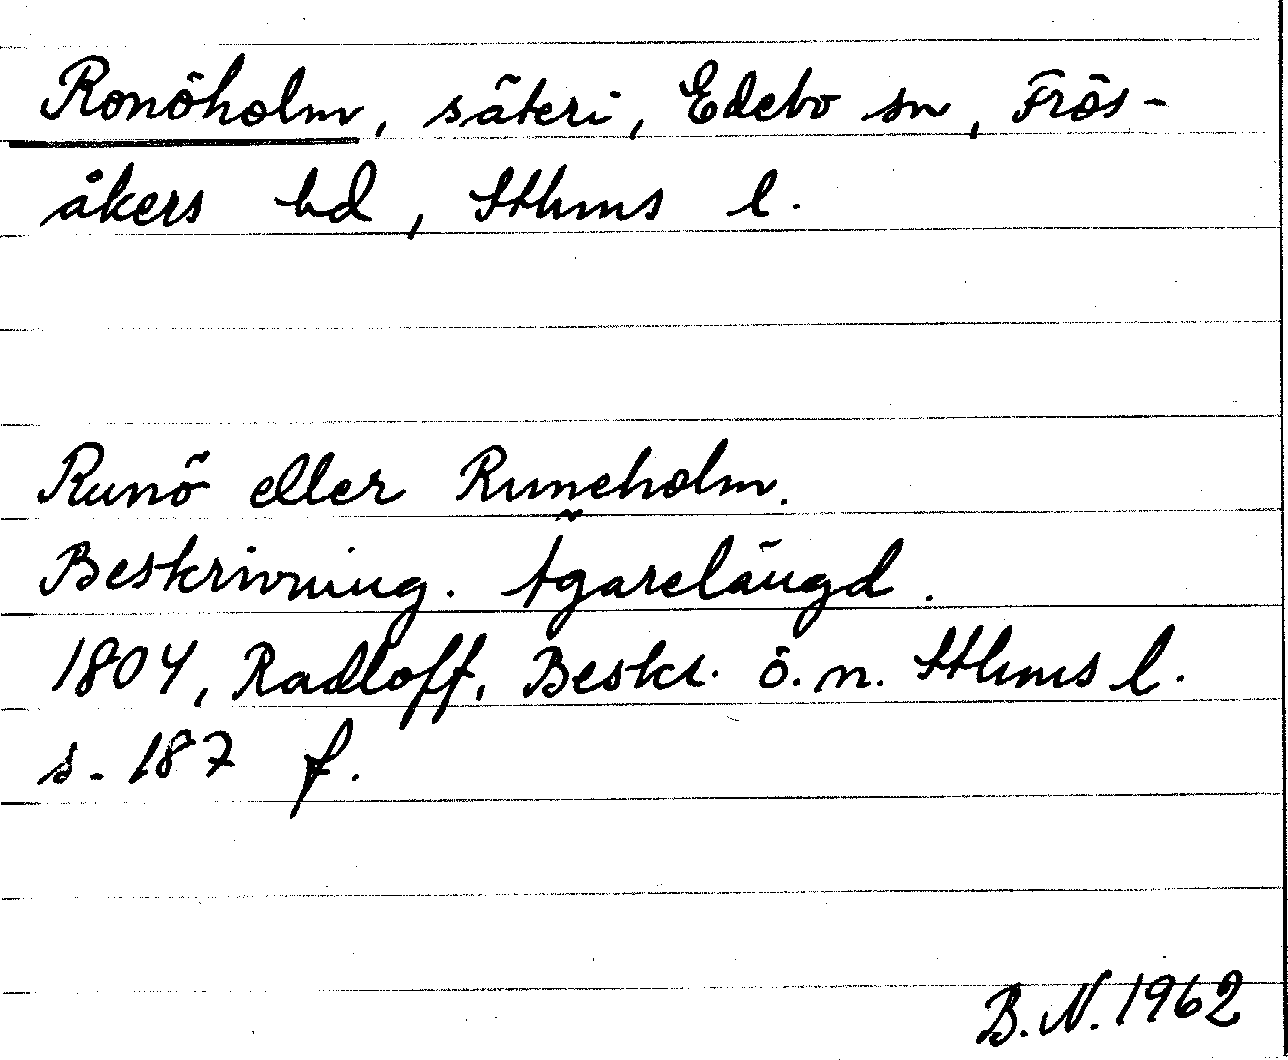 Ronöholm, säteri, Edebo sn, Frös-
åkers hd, Sthms l.
Runö eller Runeholm.
Beskrivning. Ägarelängd.
1804, Radloff, Beskr. ö. n. Sthms l.
s. 187 f.
B.N. 1962